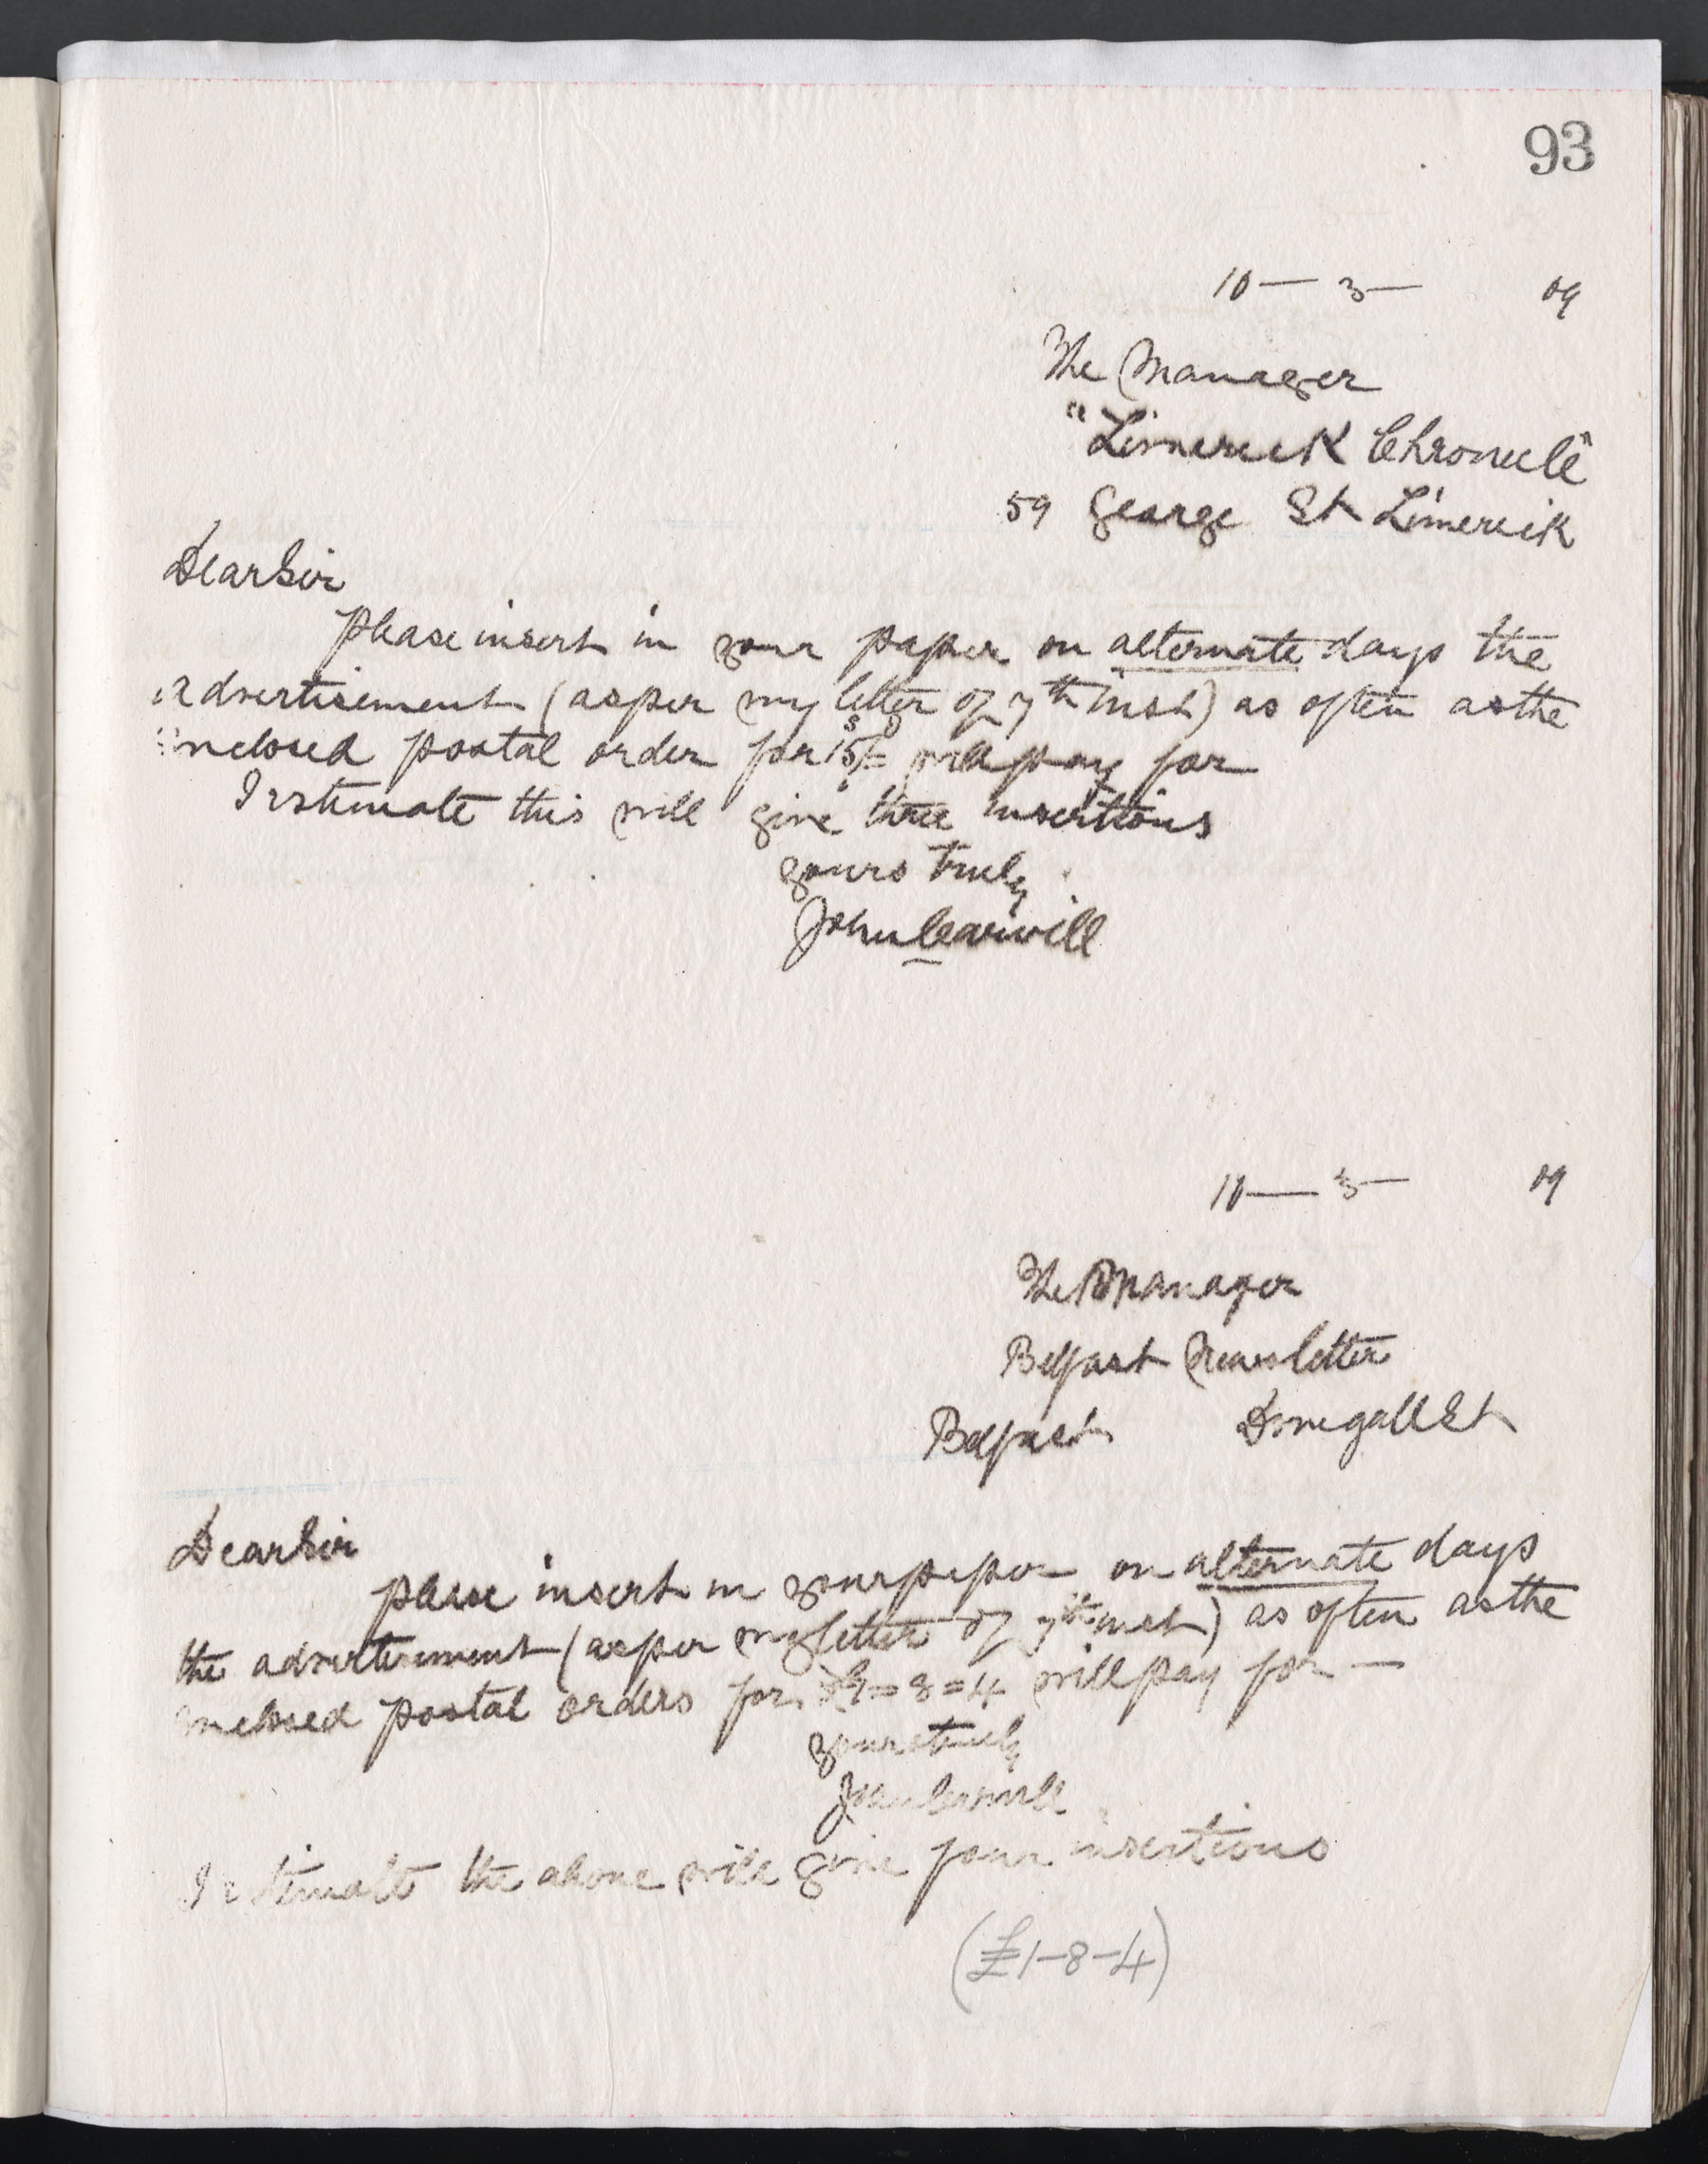 93
10 — 3 — 09
The Manager
"Limerick Chronicle"
59 George St Limerick
Dear Sir
please insert in your paper on alternate days the
advertisement (as per my letter of 7th inst) as often as the
inclosed postal order for 15/= will pay for
I estimate this will give three insertions
yours truly
John Carvill
10 — 3 — 09
The Manager
Belfast Newsletter
Belfast Donegall St
Dear Sir
please insert in your paper on alternate days
the advertisement (as per my letter of 7th inst) as often as the
inclosed postal orders for = 8 = 4 will pay for —
yours truly
John Carvill
I estimate the above will give four insertions
(£1-8-4)